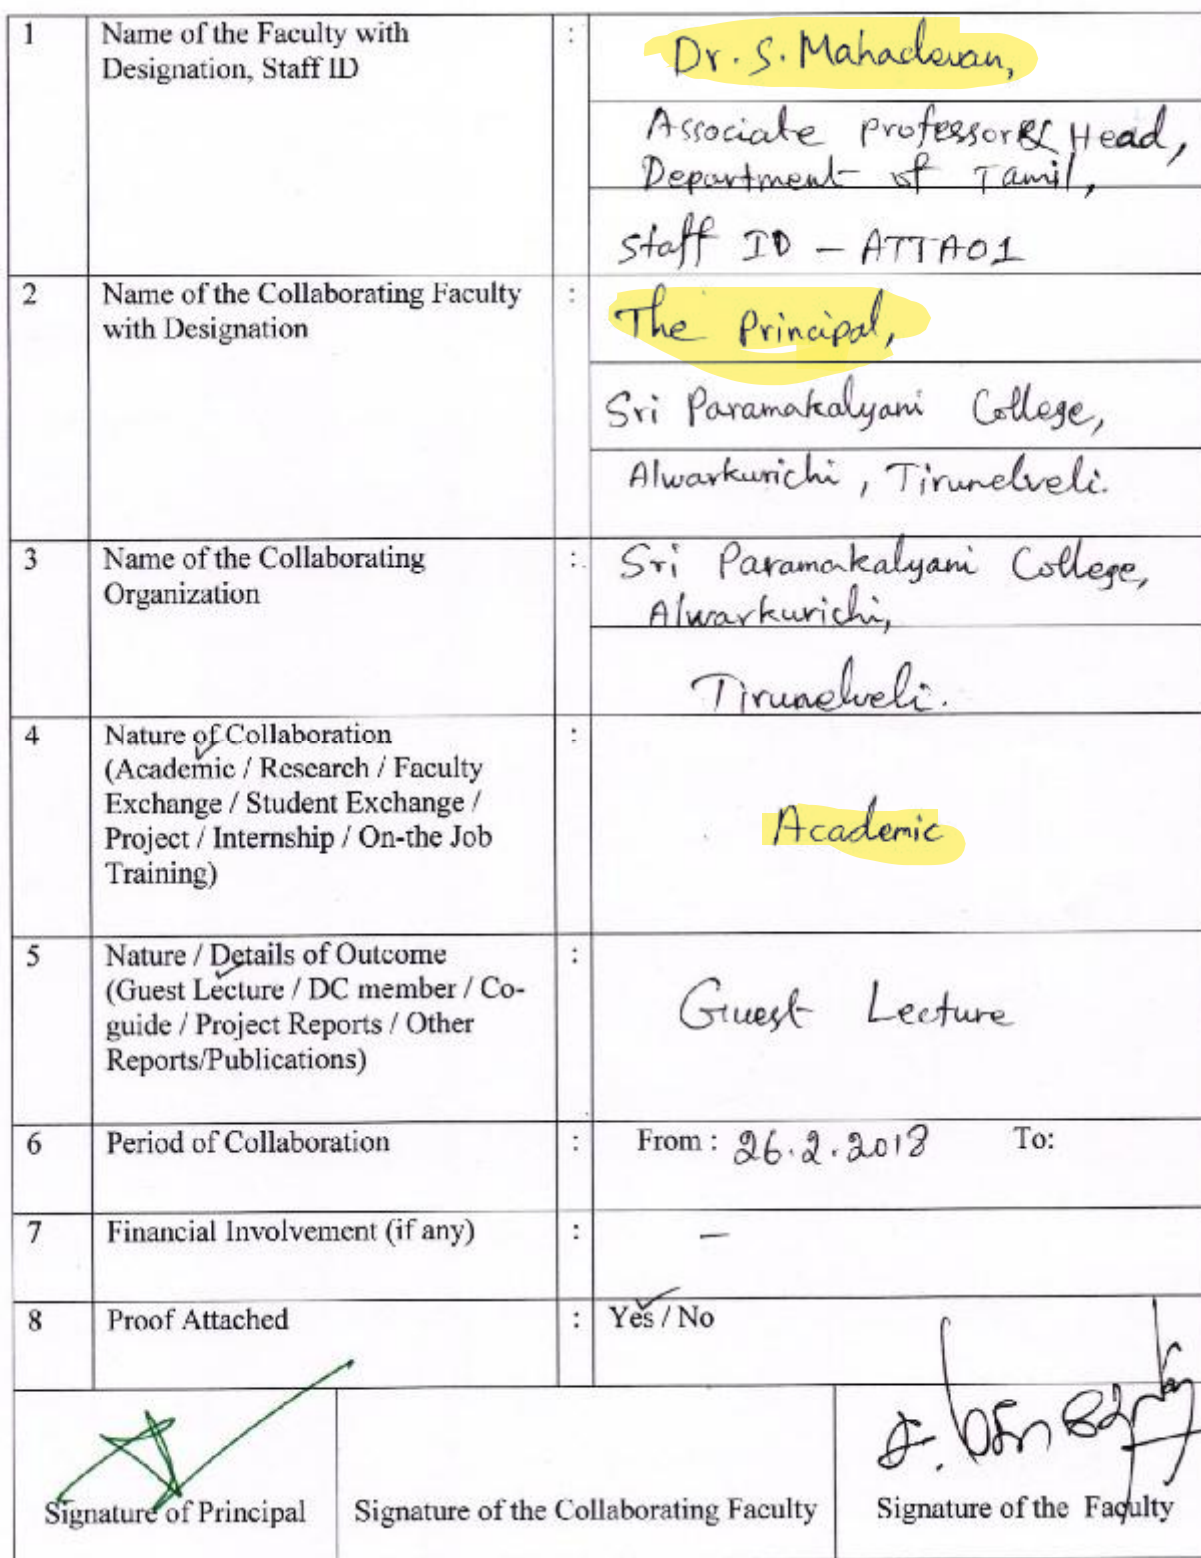 1 Name of the Faculty with : Dr. S. Mahadevan,
Designation, Staff ID
Associate professor & Head,
Department of Tamil,
Staff ID – ATTA01
2 Name of the Collaborating Faculty : The Principal,
with Designation
Sri Paramakalyani College,
Alwarkurichi, Tirunelveli.
3 Name of the Collaborating : Sri Paramakalyani College,
Organization
Alwarkurichi,
Tirunelveli.
4 Nature of Collaboration :
(Academic / Research / Faculty
Exchange / Student Exchange /
Project / Internship / On-the Job
Training)
Academic
5 Nature / Details of Outcome :
(Guest Lecture / DC member / Co-
guide / Project Reports / Other
Reports/Publications)
Guest Lecture
6 Period of Collaboration : From : 26.2.2018 To:
7 Financial Involvement (if any) : –
8 Proof Attached : Yes / No
Signature of Principal
Signature of the Collaborating Faculty
Signature of the Faculty